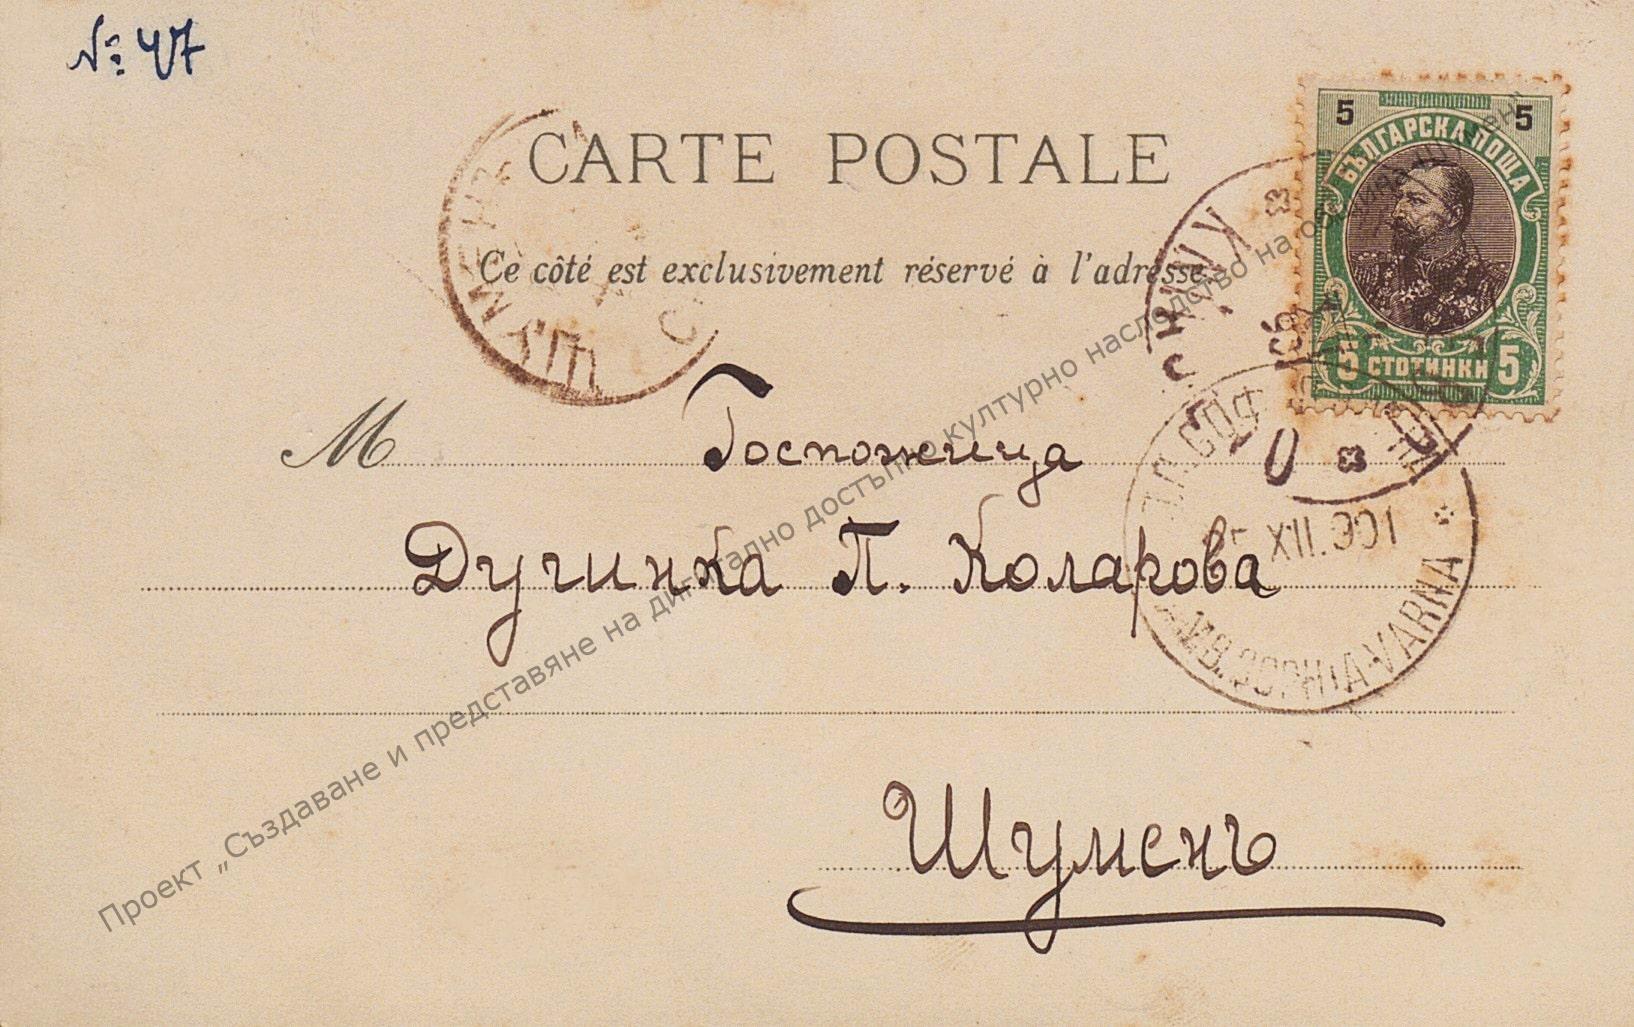 № 47
CARTE POSTALE
5 5
БЪЛГАРСКА ПОЩА
Ce côté est exclusivement réservé à l'adresse
ШУМЕНЪ
5 СТОТИНКИ 5
M Госпожица
XII.901
Дугинка П. Коларова
SOPHIA-VARNA
Шуменъ
Проект „Създаване и представяне на дигитално достъпно културно наследство на община